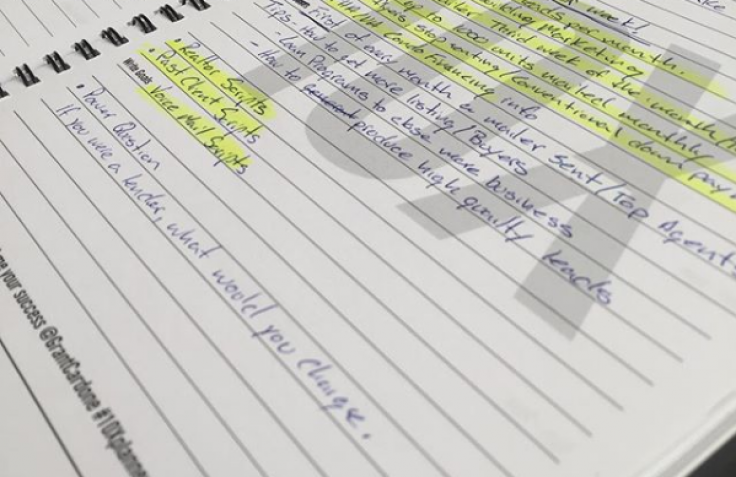 week!
per month.
/Marketing
up to 1000 units mailed monthly
Third week of the month/
stop renting/Conventional down pay
Condo Financing info
First of every month a mailer sent/Top Agents
Tips - How to get more listing/Buyers
- Loan Programs to close more business
- How to produce high quality leads
• Realtor Scripts
• Past Client Scripts
Write Goals
Voice Mail Scripts
• Power Question
If you were a lender, what would you change.
me your success @GrantCardone #10Xplanne
10X